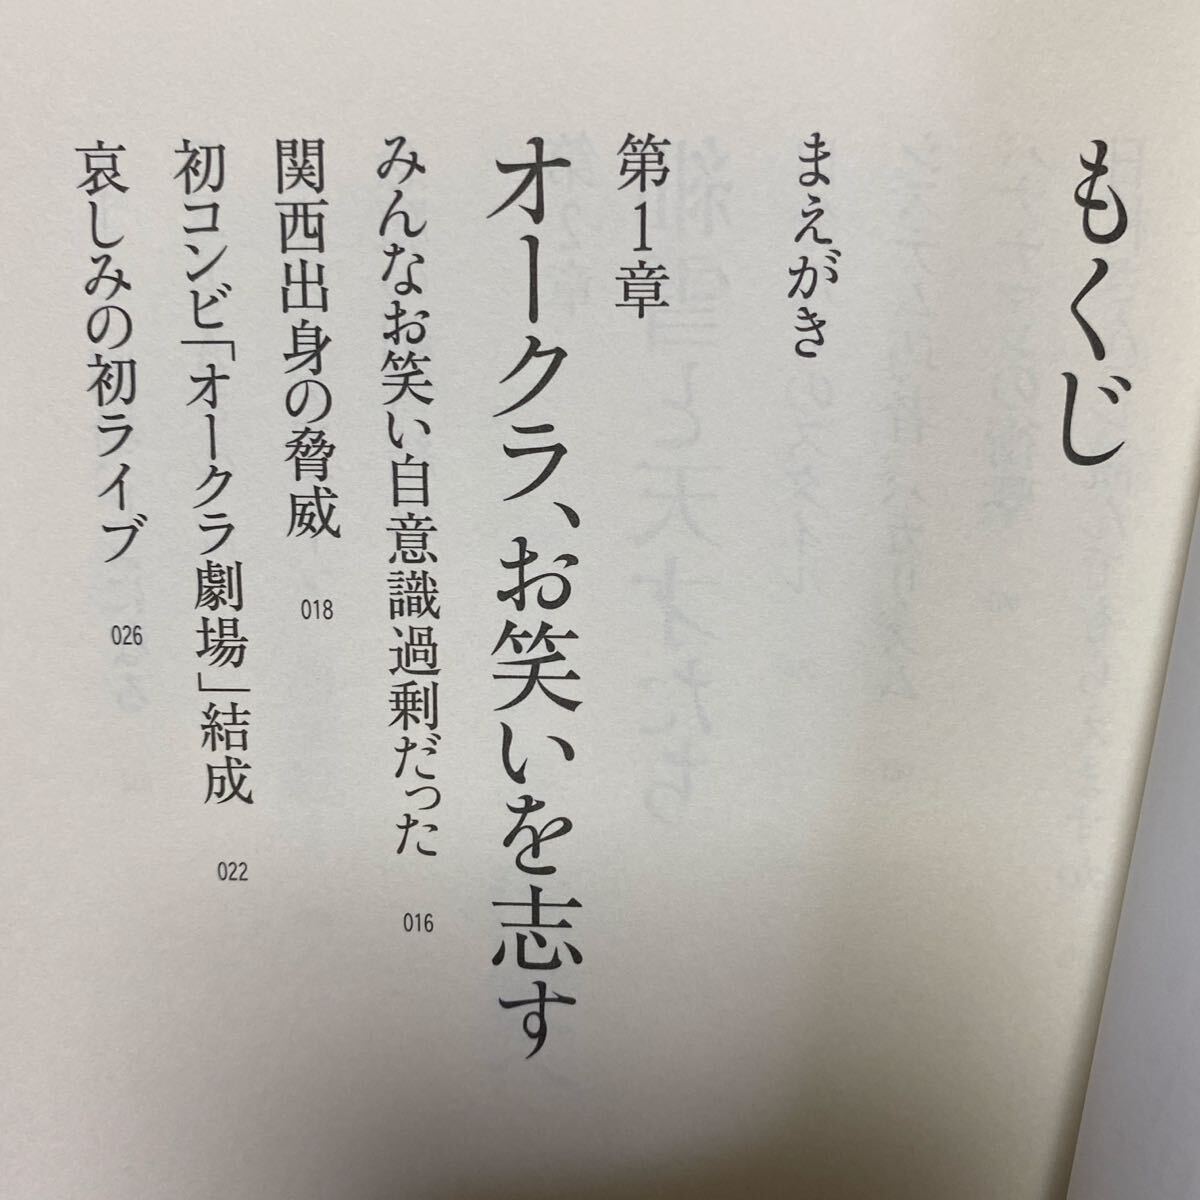 もくじ
まえがき
第1章
オークラ、お笑いを志す
みんなお笑い自意識過剰だった 016
関西出身の脅威 018
初コンビ「オークラ劇場」結成 022
哀しみの初ライブ 026